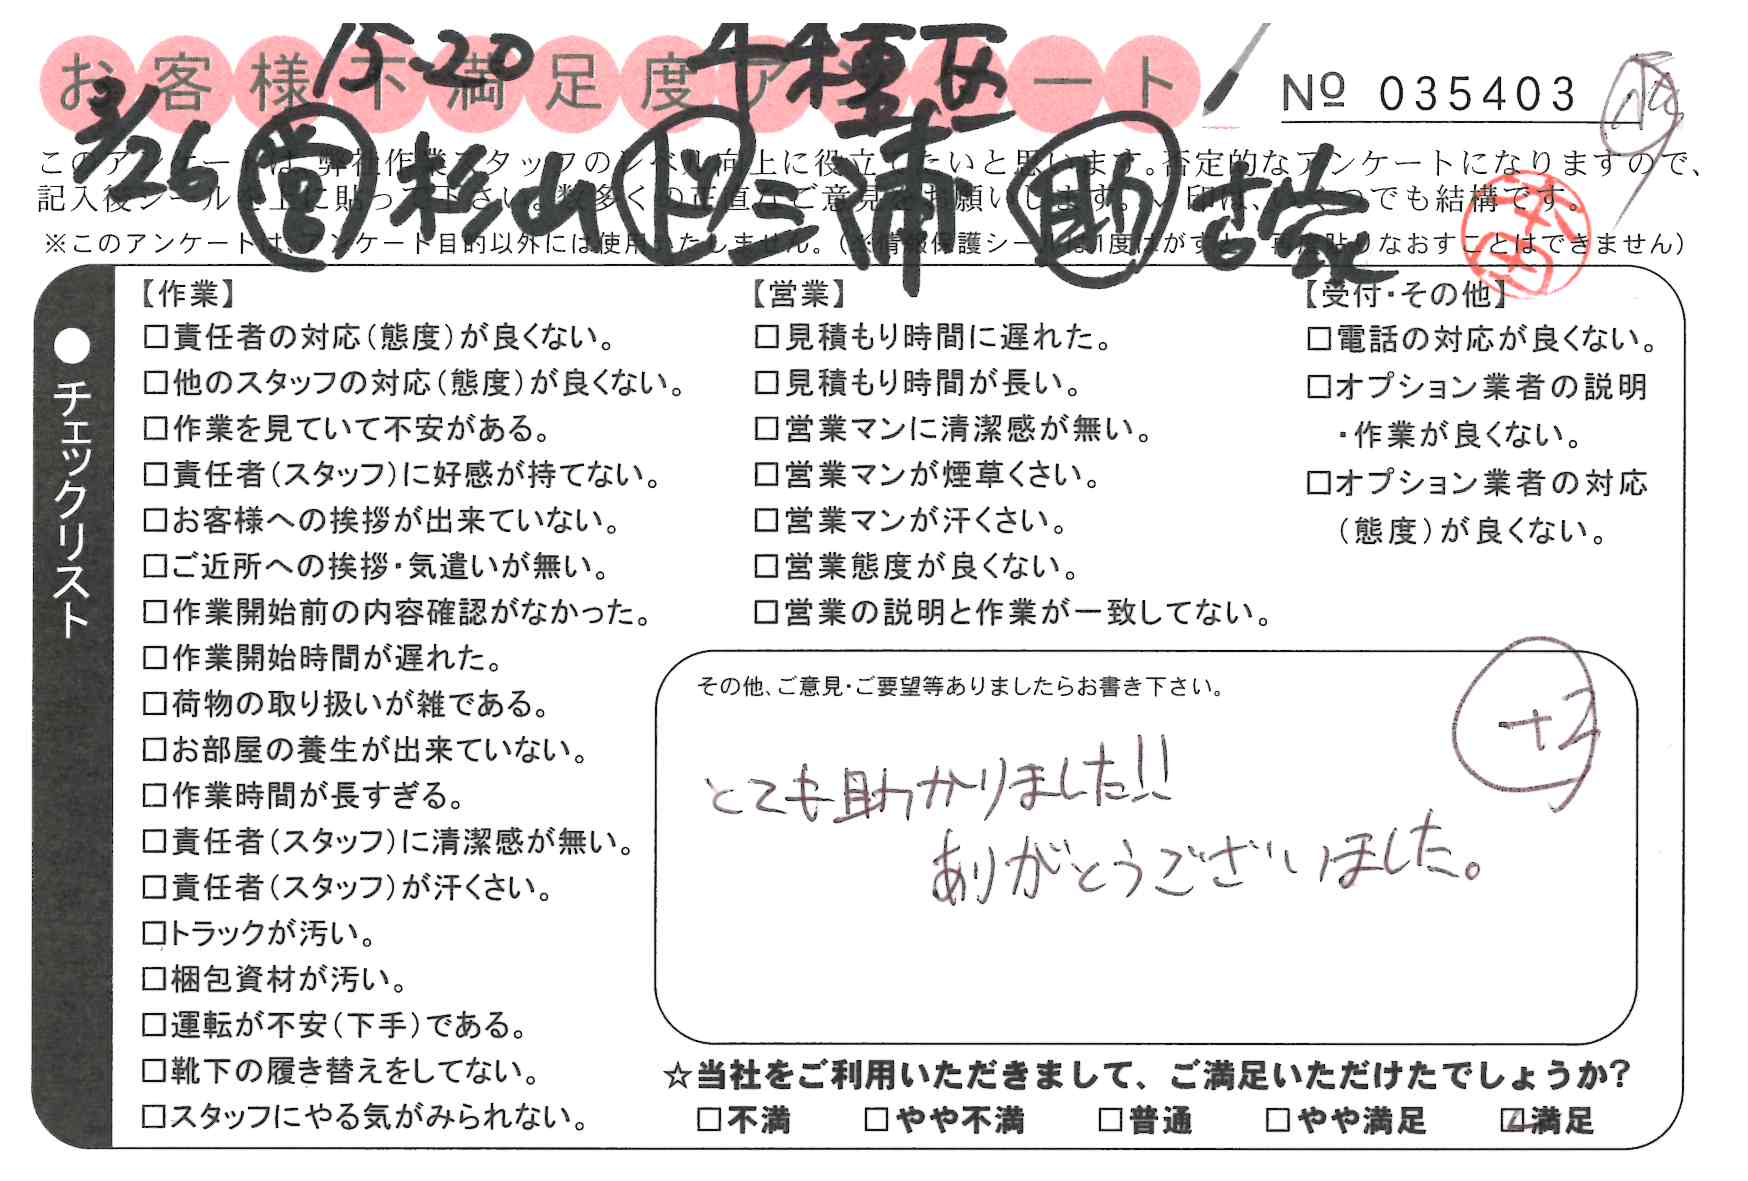 15-20 千種区
お客様不満足度アンケート
No 035403
3/26 営 杉山 ド 三浦 助 古会
このアンケートは、弊社作業スタッフのレベル向上に役立てたいと思います。否定的なアンケートになりますので、
記入後シールを上に貼って下さい。数多くの正直なご意見をお願いします。✓印は、いくつでも結構です。
※このアンケートは、アンケート目的以外には使用いたしません。(※情報保護シールは1度はがすと、再度貼りなおすことはできません)
●チェックリスト
【作業】
□責任者の対応(態度)が良くない。
□他のスタッフの対応(態度)が良くない。
□作業を見ていて不安がある。
□責任者(スタッフ)に好感が持てない。
□お客様への挨拶が出来ていない。
□ご近所への挨拶・気遣いが無い。
□作業開始前の内容確認がなかった。
□作業開始時間が遅れた。
□荷物の取り扱いが雑である。
□お部屋の養生が出来ていない。
□作業時間が長すぎる。
□責任者(スタッフ)に清潔感が無い。
□責任者(スタッフ)が汗くさい。
□トラックが汚い。
□梱包資材が汚い。
□運転が不安(下手)である。
□靴下の履き替えをしてない。
□スタッフにやる気がみられない。
【営業】
□見積もり時間に遅れた。
□見積もり時間が長い。
□営業マンに清潔感が無い。
□営業マンが煙草くさい。
□営業マンが汗くさい。
□営業態度が良くない。
□営業の説明と作業が一致してない。
【受付・その他】
□電話の対応が良くない。
□オプション業者の説明
・作業が良くない。
□オプション業者の対応
(態度)が良くない。
その他、ご意見・ご要望等ありましたらお書き下さい。
+3
とても助かりました!!
ありがとうございました。
☆当社をご利用いただきまして、ご満足いただけたでしょうか?
□不満 □やや不満 □普通 □やや満足 ☑満足